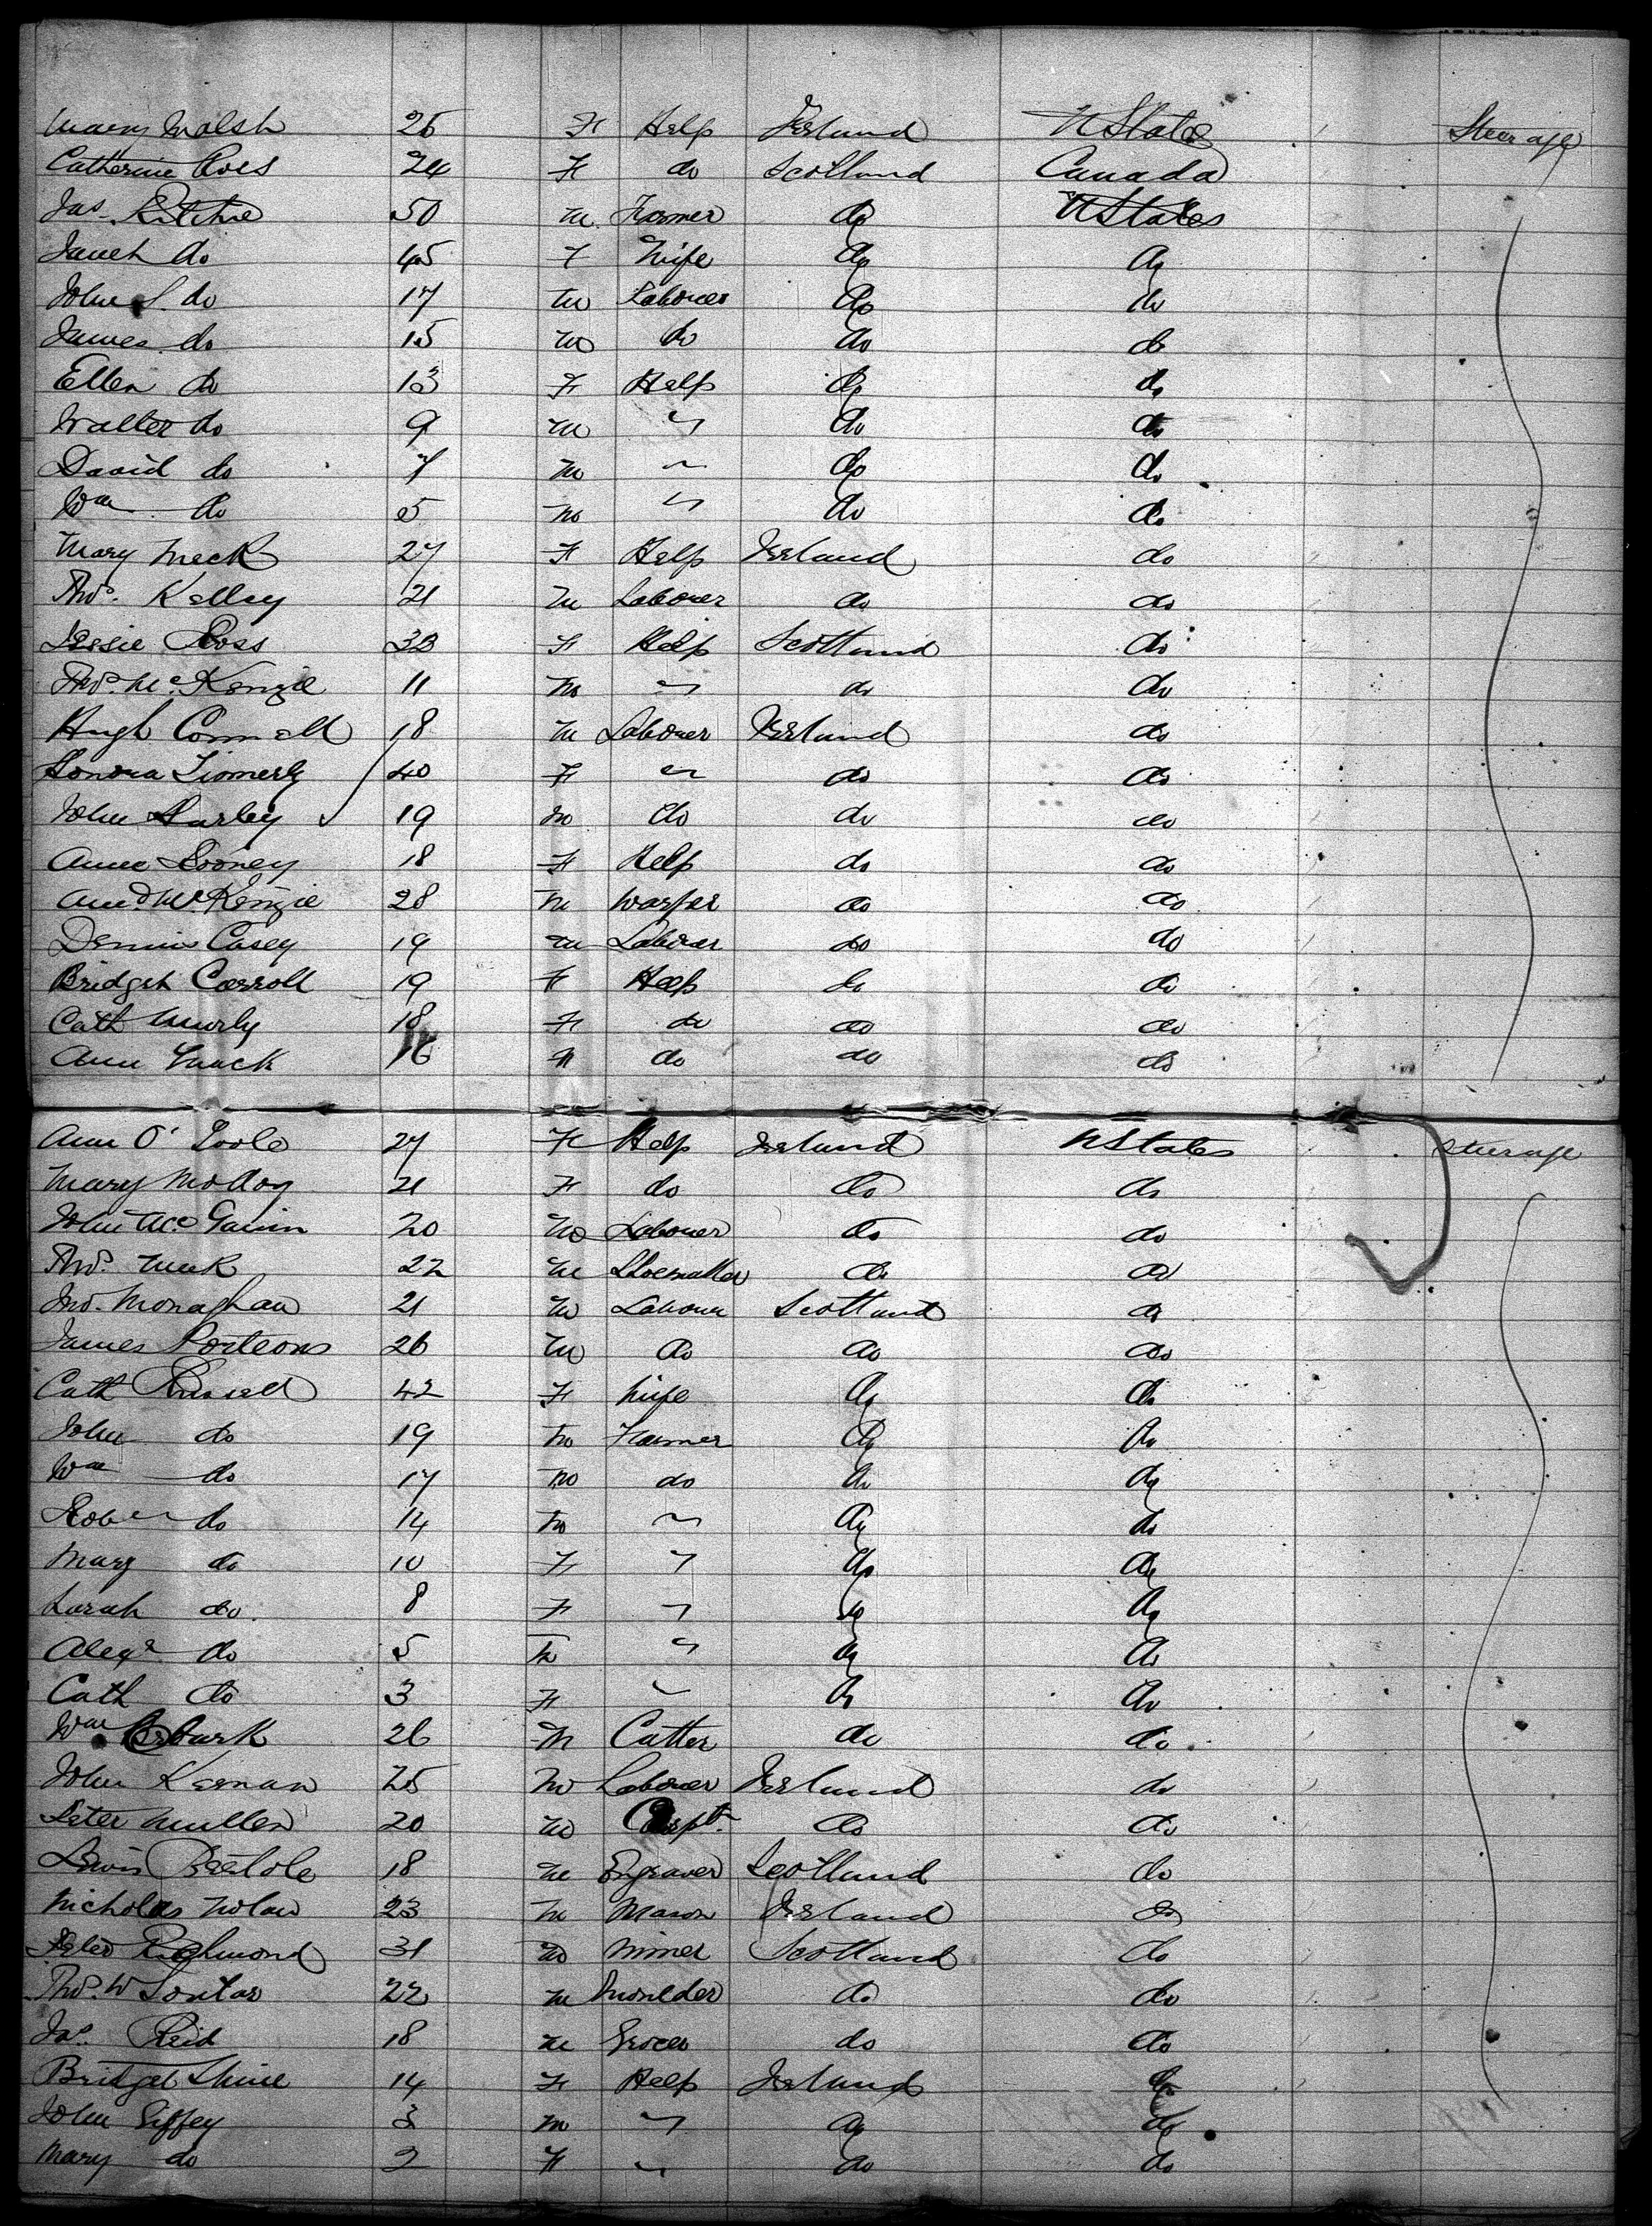 Mary Walsh 25 F Help Ireland U States Steerage
Catherine 24 F do Scotland Canada
Jas. Ritchie 50 M Farmer do U States
Janet do 45 F Wife do do
John S. do 17 M Laborer do do
James do 15 M do do do
Ellen do 13 F Help do do
Walter do 9 M " do do
David do 7 M " do do
Wm do 5 M " do do
Mary Meek 27 F Help Ireland do
Thos. Kelley 21 M Laborer do do
Jessie Ross 33 F Help Scotland do
Thos. McKenzie 11 M " do do
Hugh Connell 18 M Laborer Ireland do
Honora 40 F " do do
John Hurley 19 M do do do
Anne Looney 18 F Help do do
And. McKenzie 28 M Warper do do
Dennis Casey 19 M Laborer do do
Bridget Carroll 19 F Help do do
Cath 18 F do do do
Ann 16 F do do do
Ann O'Toole 27 F Help Ireland U States Steerage
Mary Molloy 21 F do do do
John McGavin 20 M Laborer do do
Thos. Meek 22 M Shoemaker do do
Jno. Monaghan 21 M Laborer Scotland do
James Porteous 26 M do do do
Cath Russell 42 F Wife do do
John do 19 M Farmer do do
Wm do 17 M do do do
Robert do 14 M " do do
Mary do 10 F " do do
Sarah do 8 F " do do
Alexr do 5 M " do do
Cath do 3 F " do do
Wm 26 M Cutter do do
John Keenan 25 M Laborer Ireland do
Peter Mullen 20 M Carptr do do
Lewis 18 M Engraver Scotland do
Nicholas Nolan 23 M Mason Ireland do
Peter Richmond 31 M Miner Scotland do
Thos. W Soutar 22 M Moulder do do
Jas. Reid 18 M Grocer do do
Bridget Shine 14 F Help Ireland do
John Giffey 3 M " do do
Mary do 2 F " do do